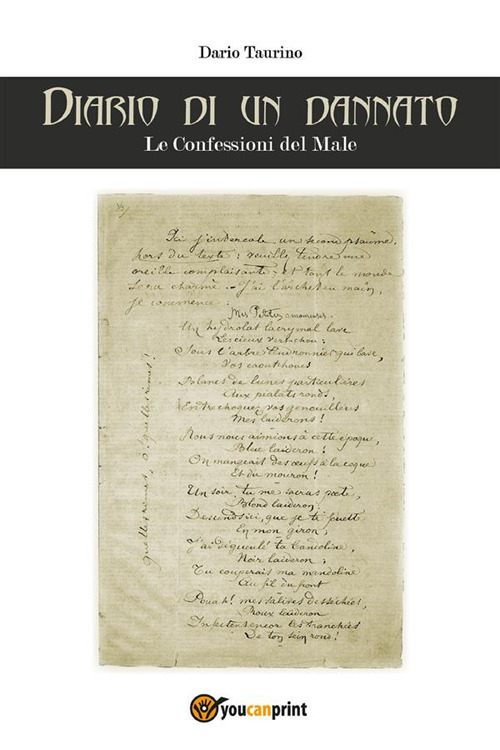 Dario Taurino
Diario di un dannato
Le Confessioni del Male
Ici j'intercale un second psaume,
hors du texte : veuillez tendre une
oreille complaisante, et tout le monde
sera charmé. — J'ai l'archet en main,
je commence :
Mes Petites amoureuses.
Un hydrolat lacrymal lave
Les cieux vert-chou :
Sous l'arbre tendronnier qui bave,
Vos caoutchoucs
Blancs de lunes particulières
Aux pialats ronds,
Entrechoquez vos genouillères
Mes laiderons !
Nous nous aimions à cette époque,
Bleu laideron !
On mangeait des œufs à la coque
Et du mouron !
Un soir, tu me sacras poète,
Blond laideron :
Descends ici, que je te fouette
En mon giron ;
J'ai dégueulé ta bandoline,
Noir laideron ;
Tu couperais ma mandoline
Au fil du front
Pouah ! mes salives desséchées,
Roux laideron
Infectent encor les tranchées
De ton sein rond !
quelles rimes, ô ! quelles rimes !
youcanprint